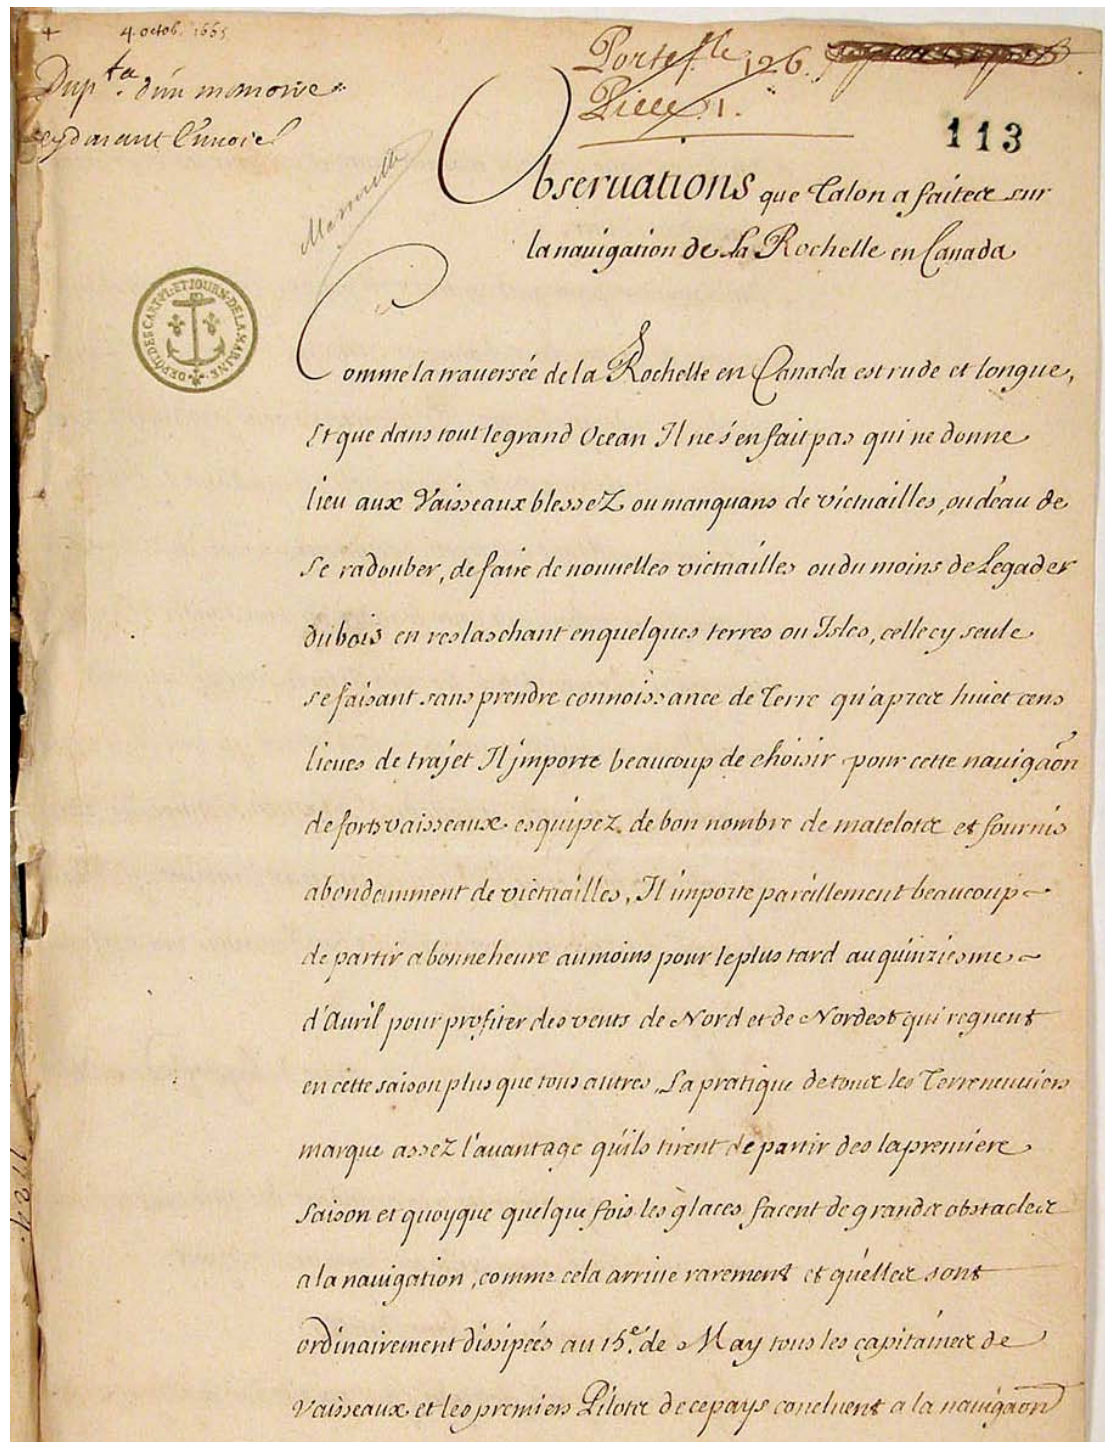 4. octob. 1665
Dup.ta d'un memoire
cydevant Envoié
Portef.lle 126.
Piece 1.
113
Observations que Talon a faites sur
la navigation de la Rochelle en Canada
DEPÔT DES CART. PL. ET JOURN. DE LA MARINE
Comme la traversée de la Rochelle en Canada est rude et longue,
Et que dans tout le grand Ocean Il ne s'en fait pas qui ne donne
lieu aux Vaisseaux blessez ou manquans de victuailles, ou d'eau de
Se radouber, de faire de nouvelles victuailles ou du moins de
du bois en reslaschant en quelques terres ou Isles, celle cy seule
se faisant sans prendre connoissance de Terre qu'apres huict cens
lieues de trajet Il jmporte beaucoup de choisir pour cette navigaon
de forts vaisseaux esquipez de bon nombre de matelots et fournis
abondamment de victuailles, Il importe pareillement beaucoup
de partir a bonne heure au moins pour le plus tard au quinziesme
d'Avril pour profiter des vents de Nord et de Nordest qui regnent
en cette saison plus que tous autres, La pratique de tous les Terreneuviers
marque assez l'avantage qu'ils tirent de partir des la premiere
Saison et quoyque quelque fois les glaces facent de grands obstacles
a la navigation, comme cela arrive rarement et qu'elles sont
ordinairement dissipées au 15.e de May tous les capitaines de
Vaisseaux et les premiers Pilotes de ce pays concluent a la navigaon
1724.